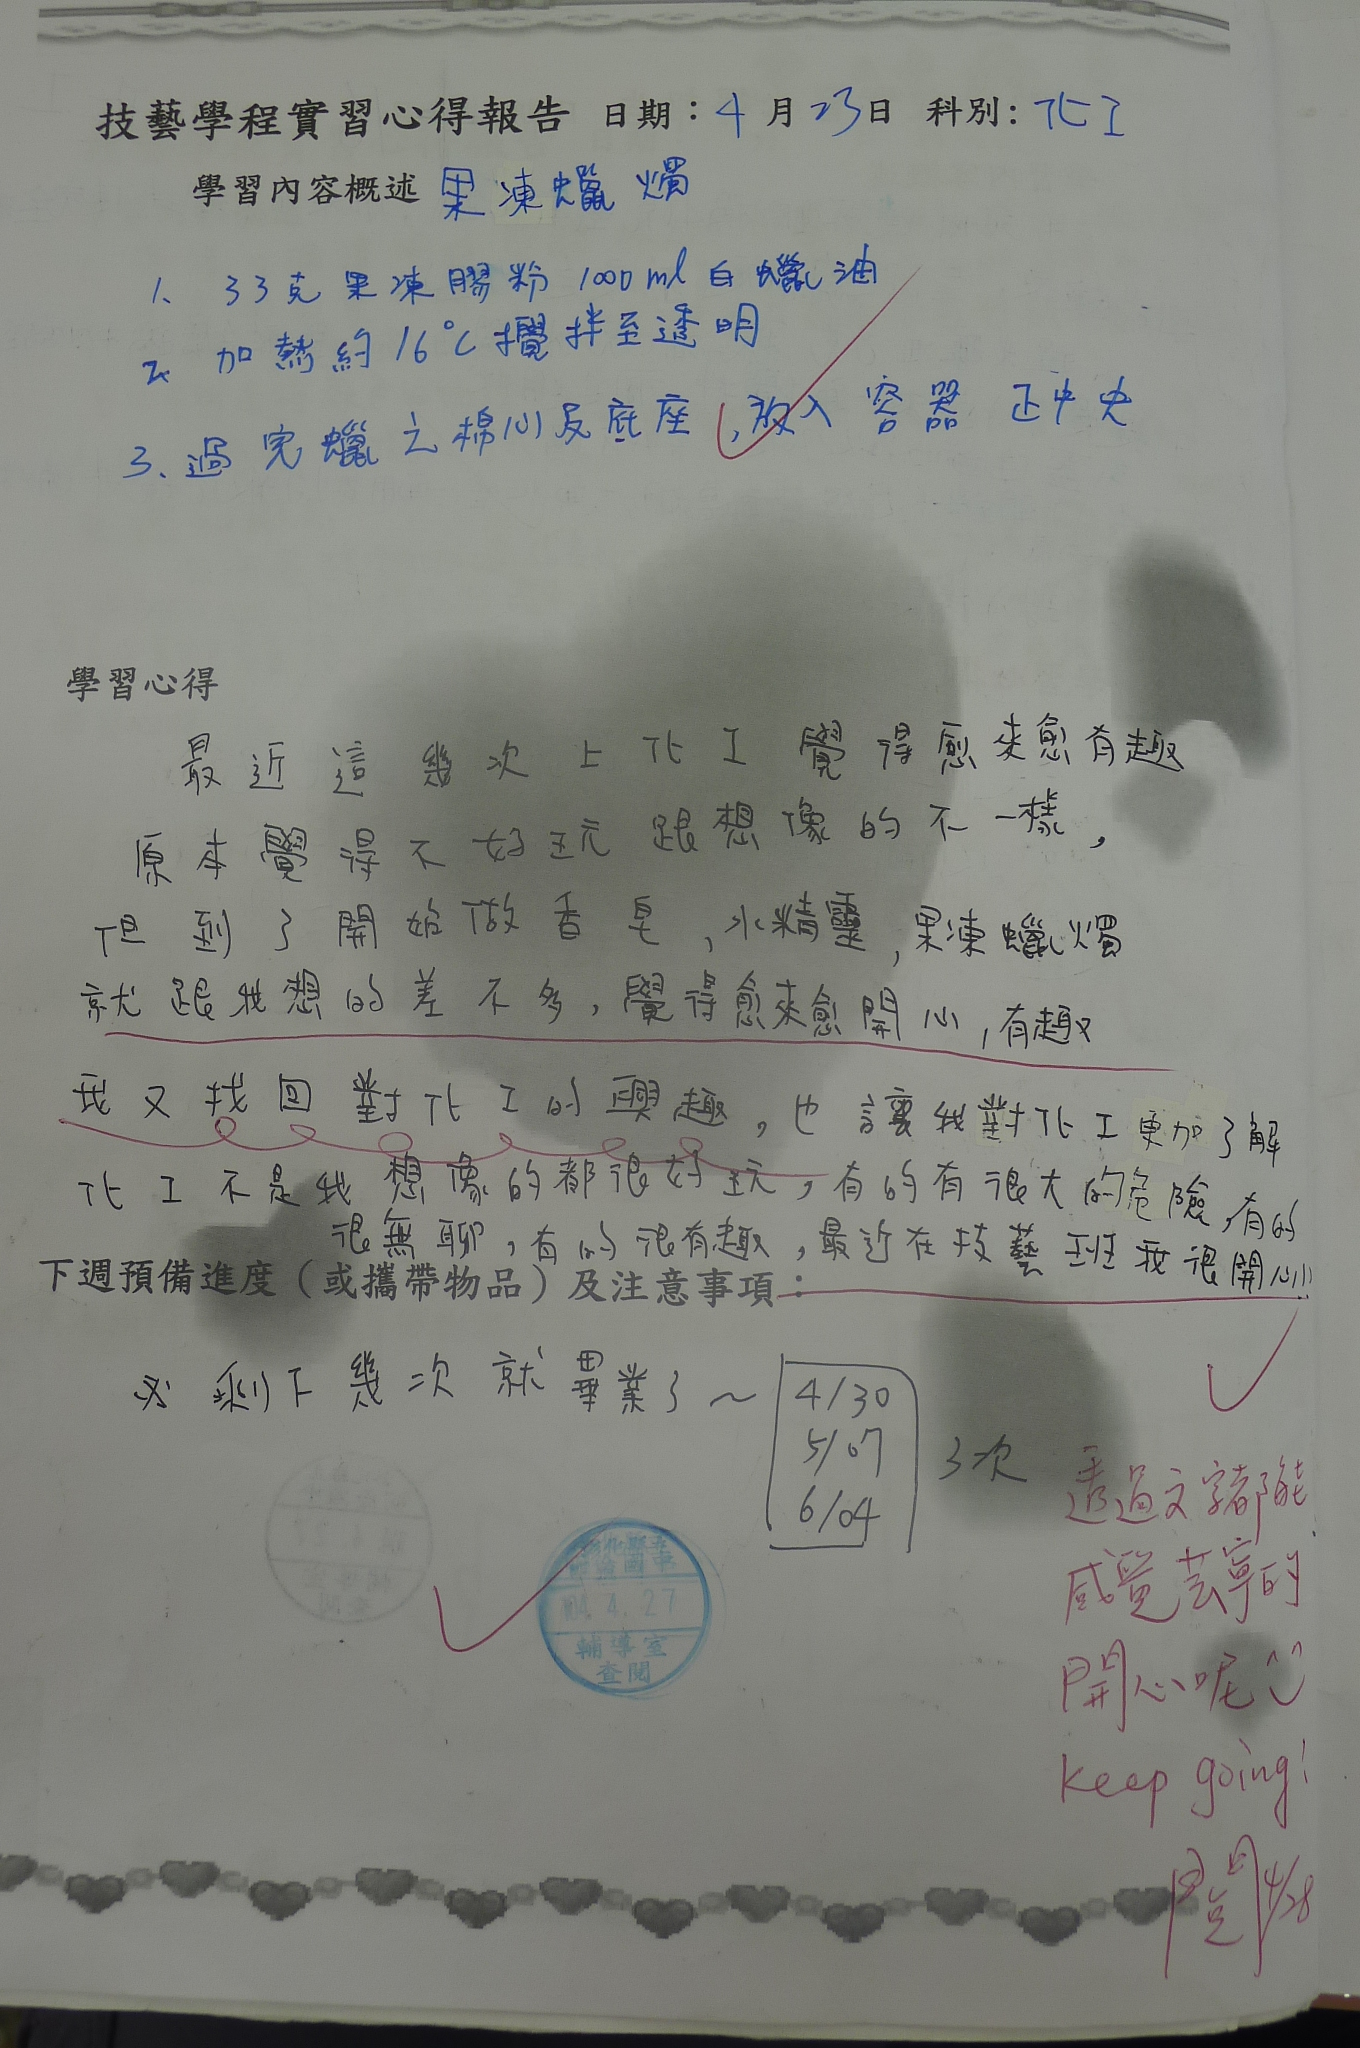 技藝學程實習心得報告 日期：4月23日 科別：化工
學習內容概述 果凍蠟燭
1. 33克果凍膠粉 1000ml白蠟油
2. 加熱約16°C攪拌至透明
3. 過完蠟之棉心及底座，放入容器正中央
學習心得
最近這幾次上化工覺得愈來愈有趣
原本覺得不好玩跟想像的不一樣，
但到了開始做香皂，水精靈，果凍蠟燭
就跟我想的差不多，覺得愈來愈開心，有趣
我又找回對化工的興趣，也讓我對化工更加了解
化工不是我想像的都很好玩，有的有很大的危險，有的
很無聊，有的很有趣，最近在技藝班我很開心
下週預備進度（或攜帶物品）及注意事項：
剩下幾次就畢業了～
4/30
5/07
6/04
3次
透過文字都能
感覺芸寧的
開心呢
keep going!
閱 4/28
104.4.27
輔導室
查閱